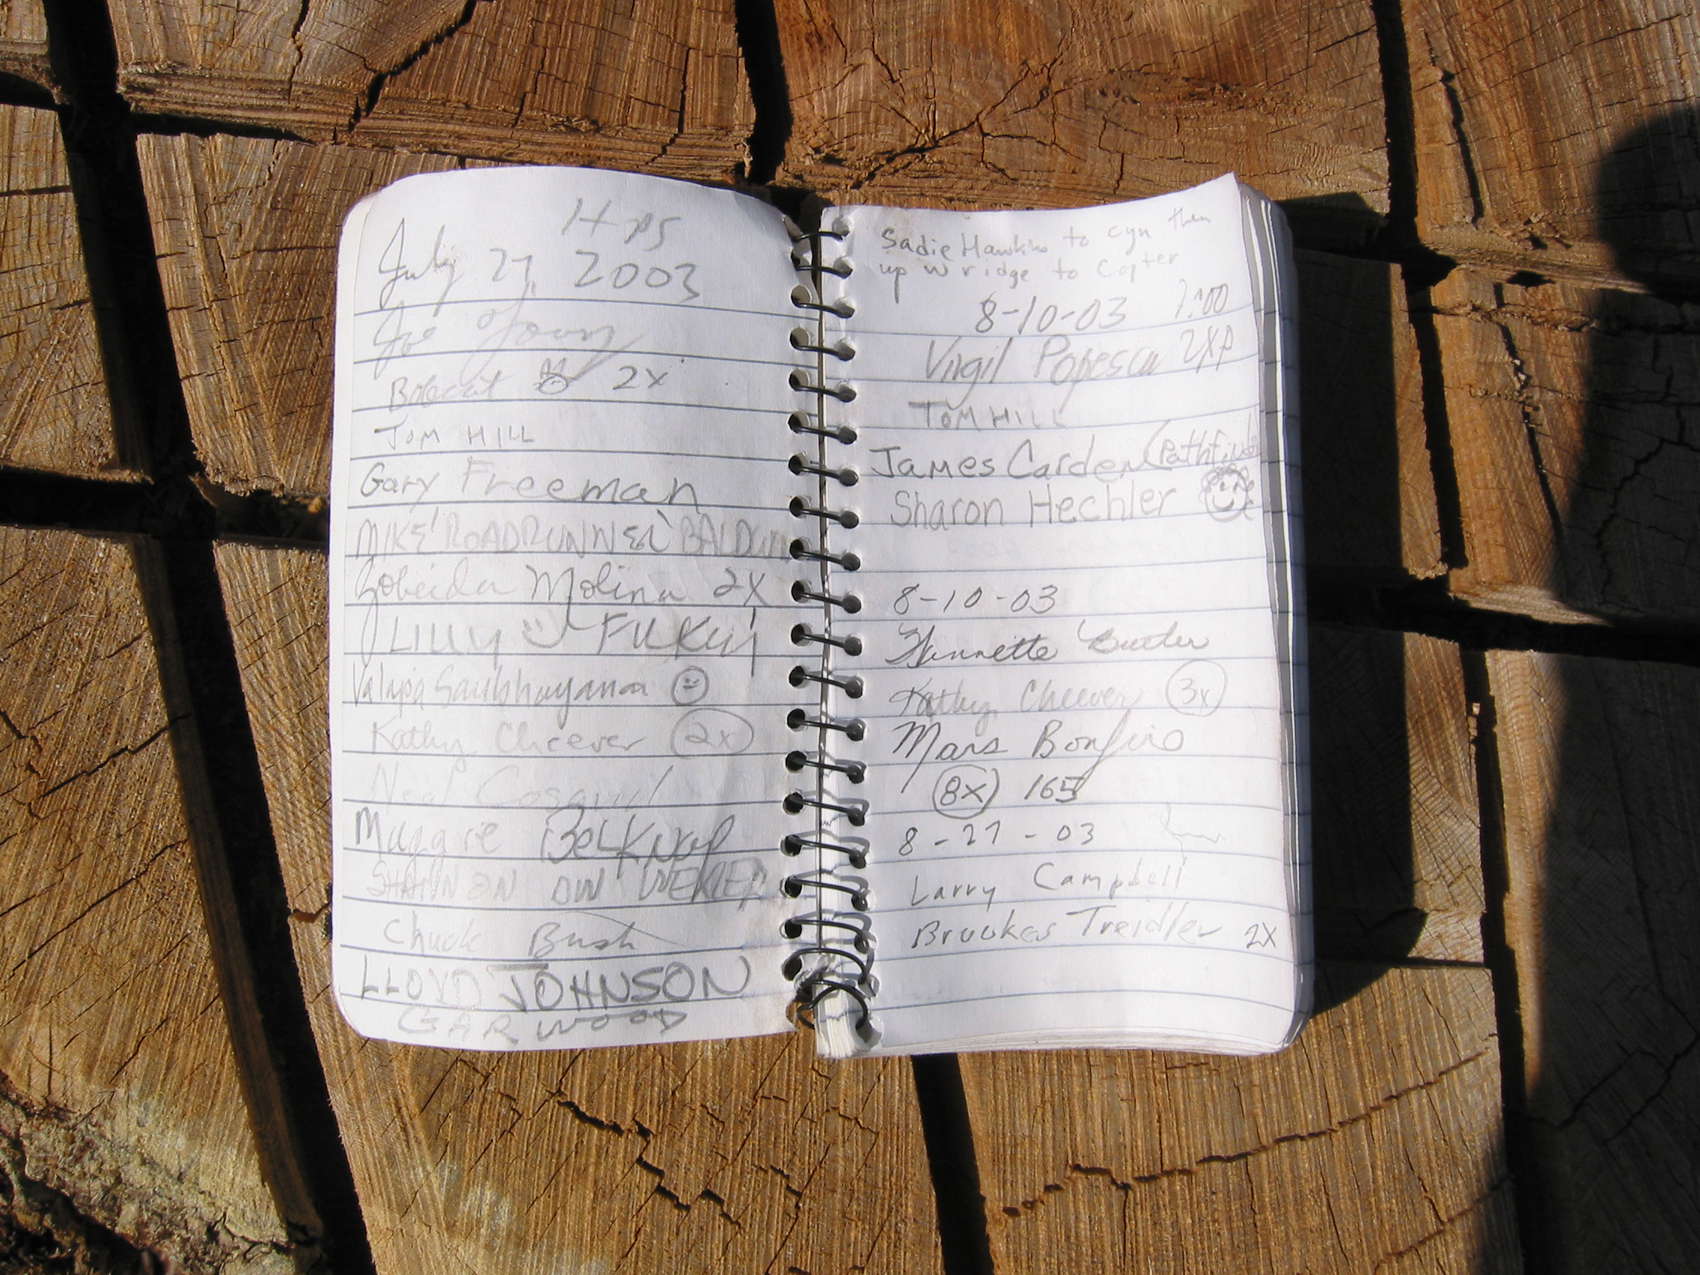 HPS
July 27, 2003
Joe Young
Bobcat 2x
TOM HILL
Gary Freeman
MIKE 'ROADRUNNER' BALDWIN
Zobeida Molina 2X
LILLY FUKUI
Kathy Cheever 2x
Neal
Maggie BELKNAP
SHANNON
Chuck Bush
LLOYD JOHNSON
GARWOOD
Sadie Hawkins to cyn then
up w ridge to Copter
8-10-03 7:00
Virgil Popescu 2XP
TOM HILL
James Carden (Pathfinder
Sharon Hechler
8-10-03
Kathy Cheever 3x
Mars Bonfire
8x 165
8-27-03
Larry Campbell
Brookes Treidler 2X